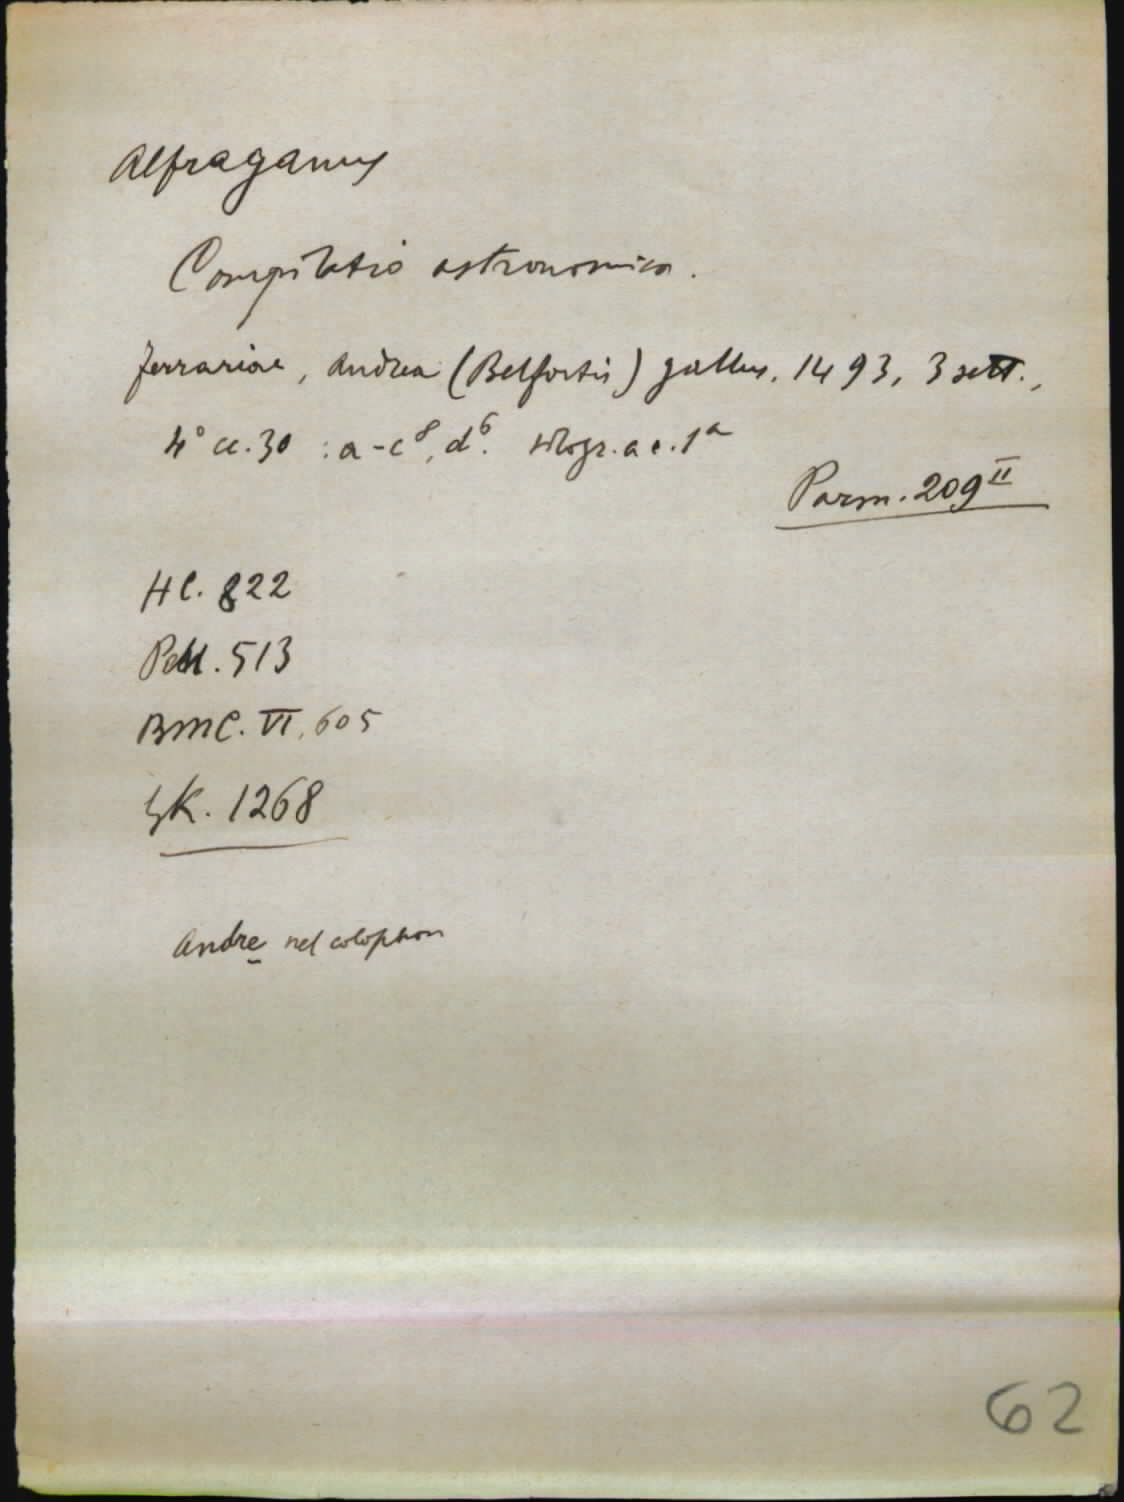 Alfraganus
Compilatio astronomica.
Ferrariae, Andrea (Belfortis) gallus, 1493, 3 sett.,
4° cc. 30 : a-c⁸, d⁶. silogr. a c. 1ª
Parm. 209ᴵᴵ
HC. 822
Pell. 513
BMC. VI, 605
GK. 1268
Andre nel colophon
62